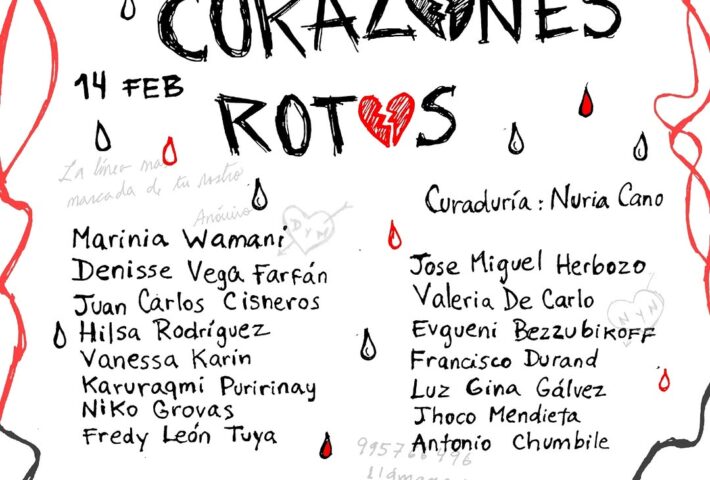 CORAZONES
14 FEB
ROTOS
La línea
marcada de tu rostro
Curaduría: Nuria Cano
D y M
Marinia Wamani
Denisse Vega Farfán
Juan Carlos Cisneros
Hilsa Rodríguez
Vanessa Karin
Karuraqmi Puririnay
Niko Grovas
Fredy León Tuya
Jose Miguel Herbozo
Valeria De Carlo
N y N
Evgueni Bezzubikoff
Francisco Durand
Luz Gina Gálvez
Jhoco Mendieta
Antonio Chumbile